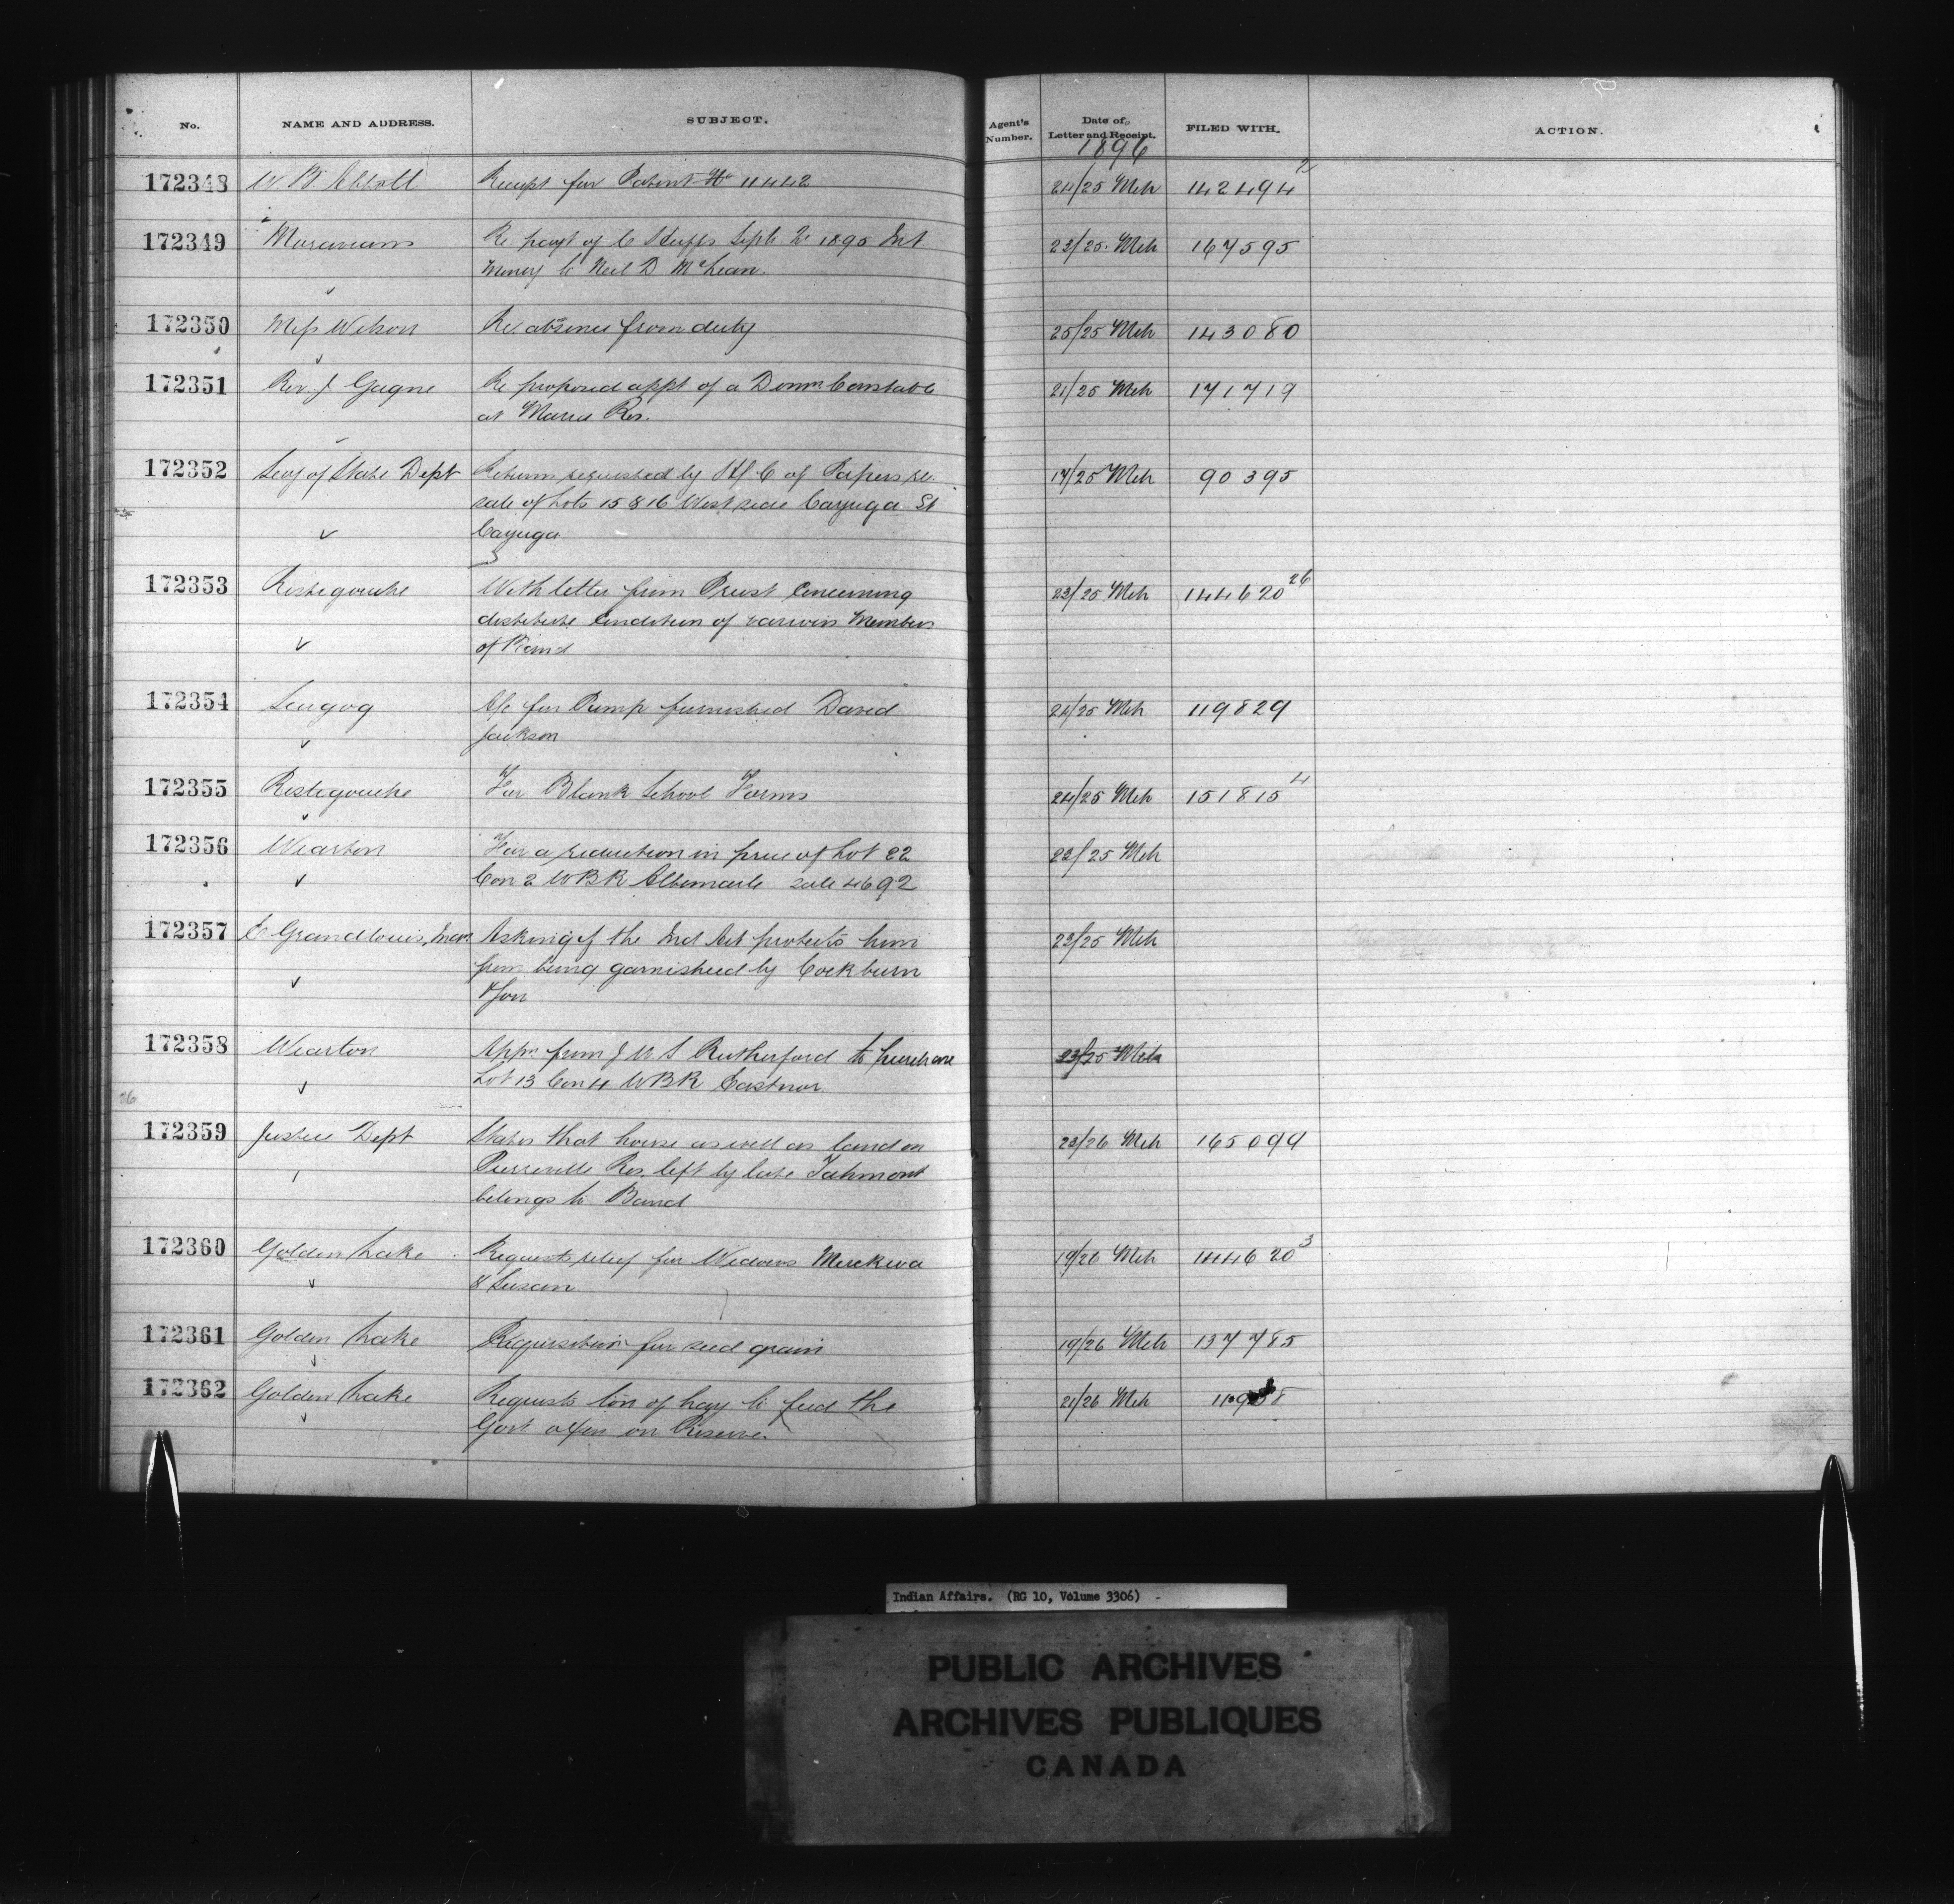 No. NAME AND ADDRESS. SUBJECT. Agent's Number. Date of Letter and Receipt. FILED WITH. ACTION.
1896
172348 W. B. Abbott Receipt for Patent No 11442 24/25 Mch 142494 2
172349 Moravians Re payt of C Stuffs Sept 2 1895 Int 23/25 Mch 167595
Money to Neil D McLean.
172350 Miss Wilson Re absence from duty 25/25 Mch 143080
172351 Rev. J Gagne Re proposed appt of a Domn Constable 21/25 Mch 171719
at Maria Res.
172352 Secy of State Dept Return requested by H of C of Papers re 17/25 Mch 90395
sale of Lots 15 & 16 West side Cayuga St
Cayuga
172353 Restigouche With letter from Priest concerning 23/25 Mch 144620 26
destitute condition of various Members
of Band
172354 Scugog A/c for Pump furnished David 24/25 Mch 119829
Jackson
172355 Restigouche For Blank School Forms 24/25 Mch 151815 4
172356 Wiarton For a reduction in price of Lot 22 23/25 Mch
Con 2 WBR Albemarle sale 4692
172357 C Grandlouis, Asking if the Ind Act protects him 23/25 Mch
from being garnisheed by Cockburn
& Son
172358 Wiarton Appn from J W S Rutherford to purchase 23/25 Mch
Lot 13 Con 4 WBR Eastnor
26
172359 Justice Dept States that house as well as land on 23/26 Mch 165099
Pierreville Res. left by late Tahmont
belongs to Band
172360 Golden Lake Requests relief for Widows Merckwa 19/26 Mch 144620 3
& Susan
172361 Golden Lake Requisition for seed grain 19/26 Mch 137785
172362 Golden Lake Requests ton of hay to feed the 21/26 Mch
Govt oxen on Reserve.
Indian Affairs. (RG 10, Volume 3306)
PUBLIC ARCHIVES
ARCHIVES PUBLIQUES
CANADA